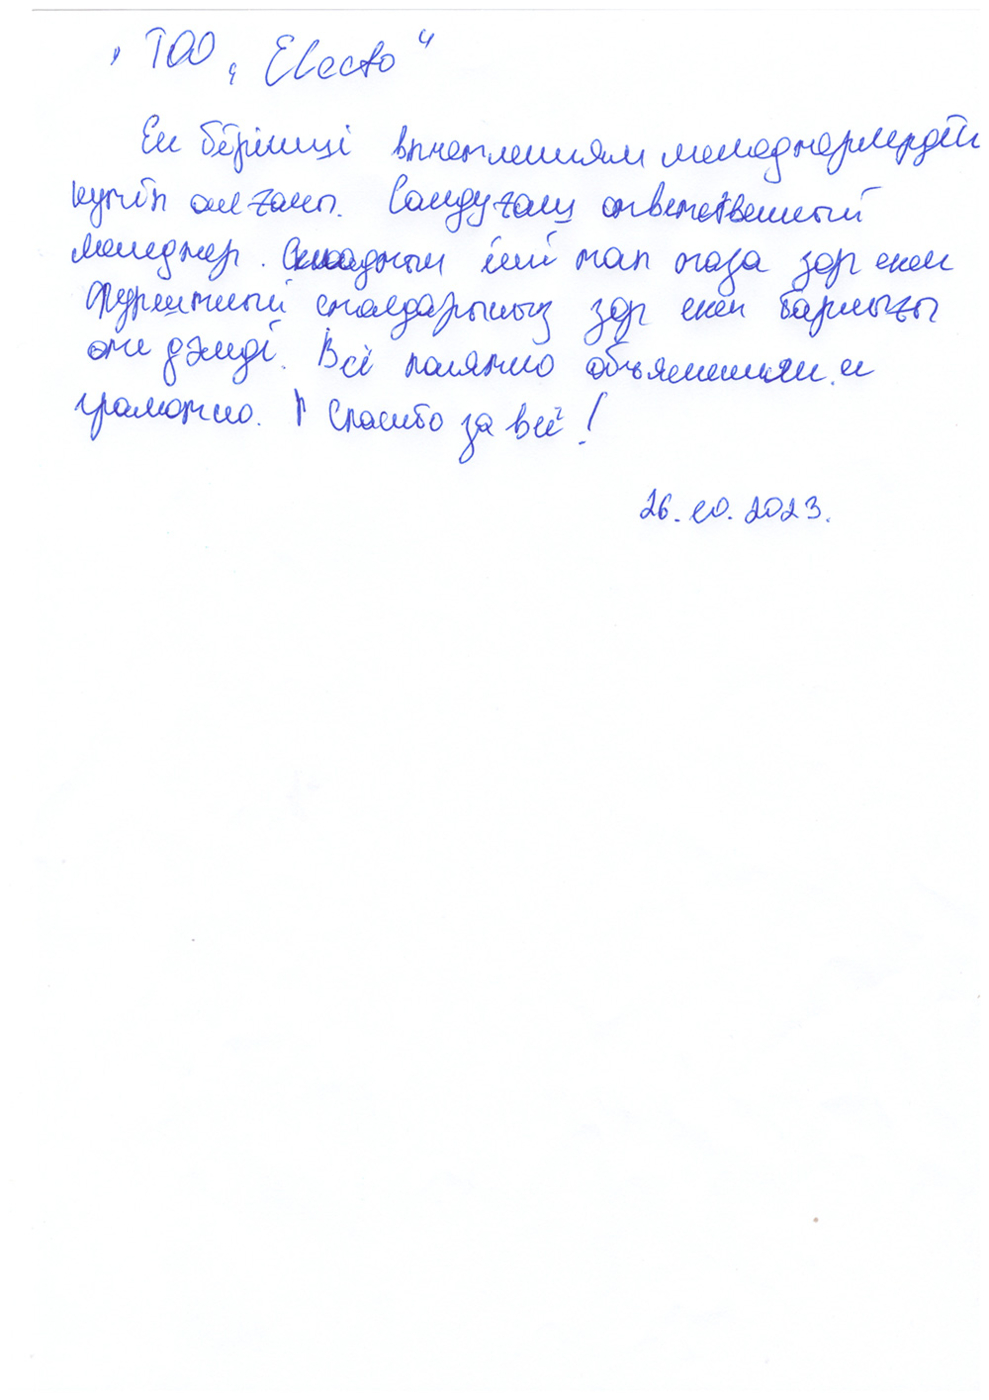 " ТОО „ Electo "
Ең бірінші впечатлениям менеджерлердің
күтіп алғаны. Сандуғаш ответственный
менеджер. Складтың іші тап таза зор екен
Фуршетный столдарыңыз зор екен барлығы
өте дәмді. Всё понятно объяснили и
грамотно. Спасибо за всё!
26.10.2023.